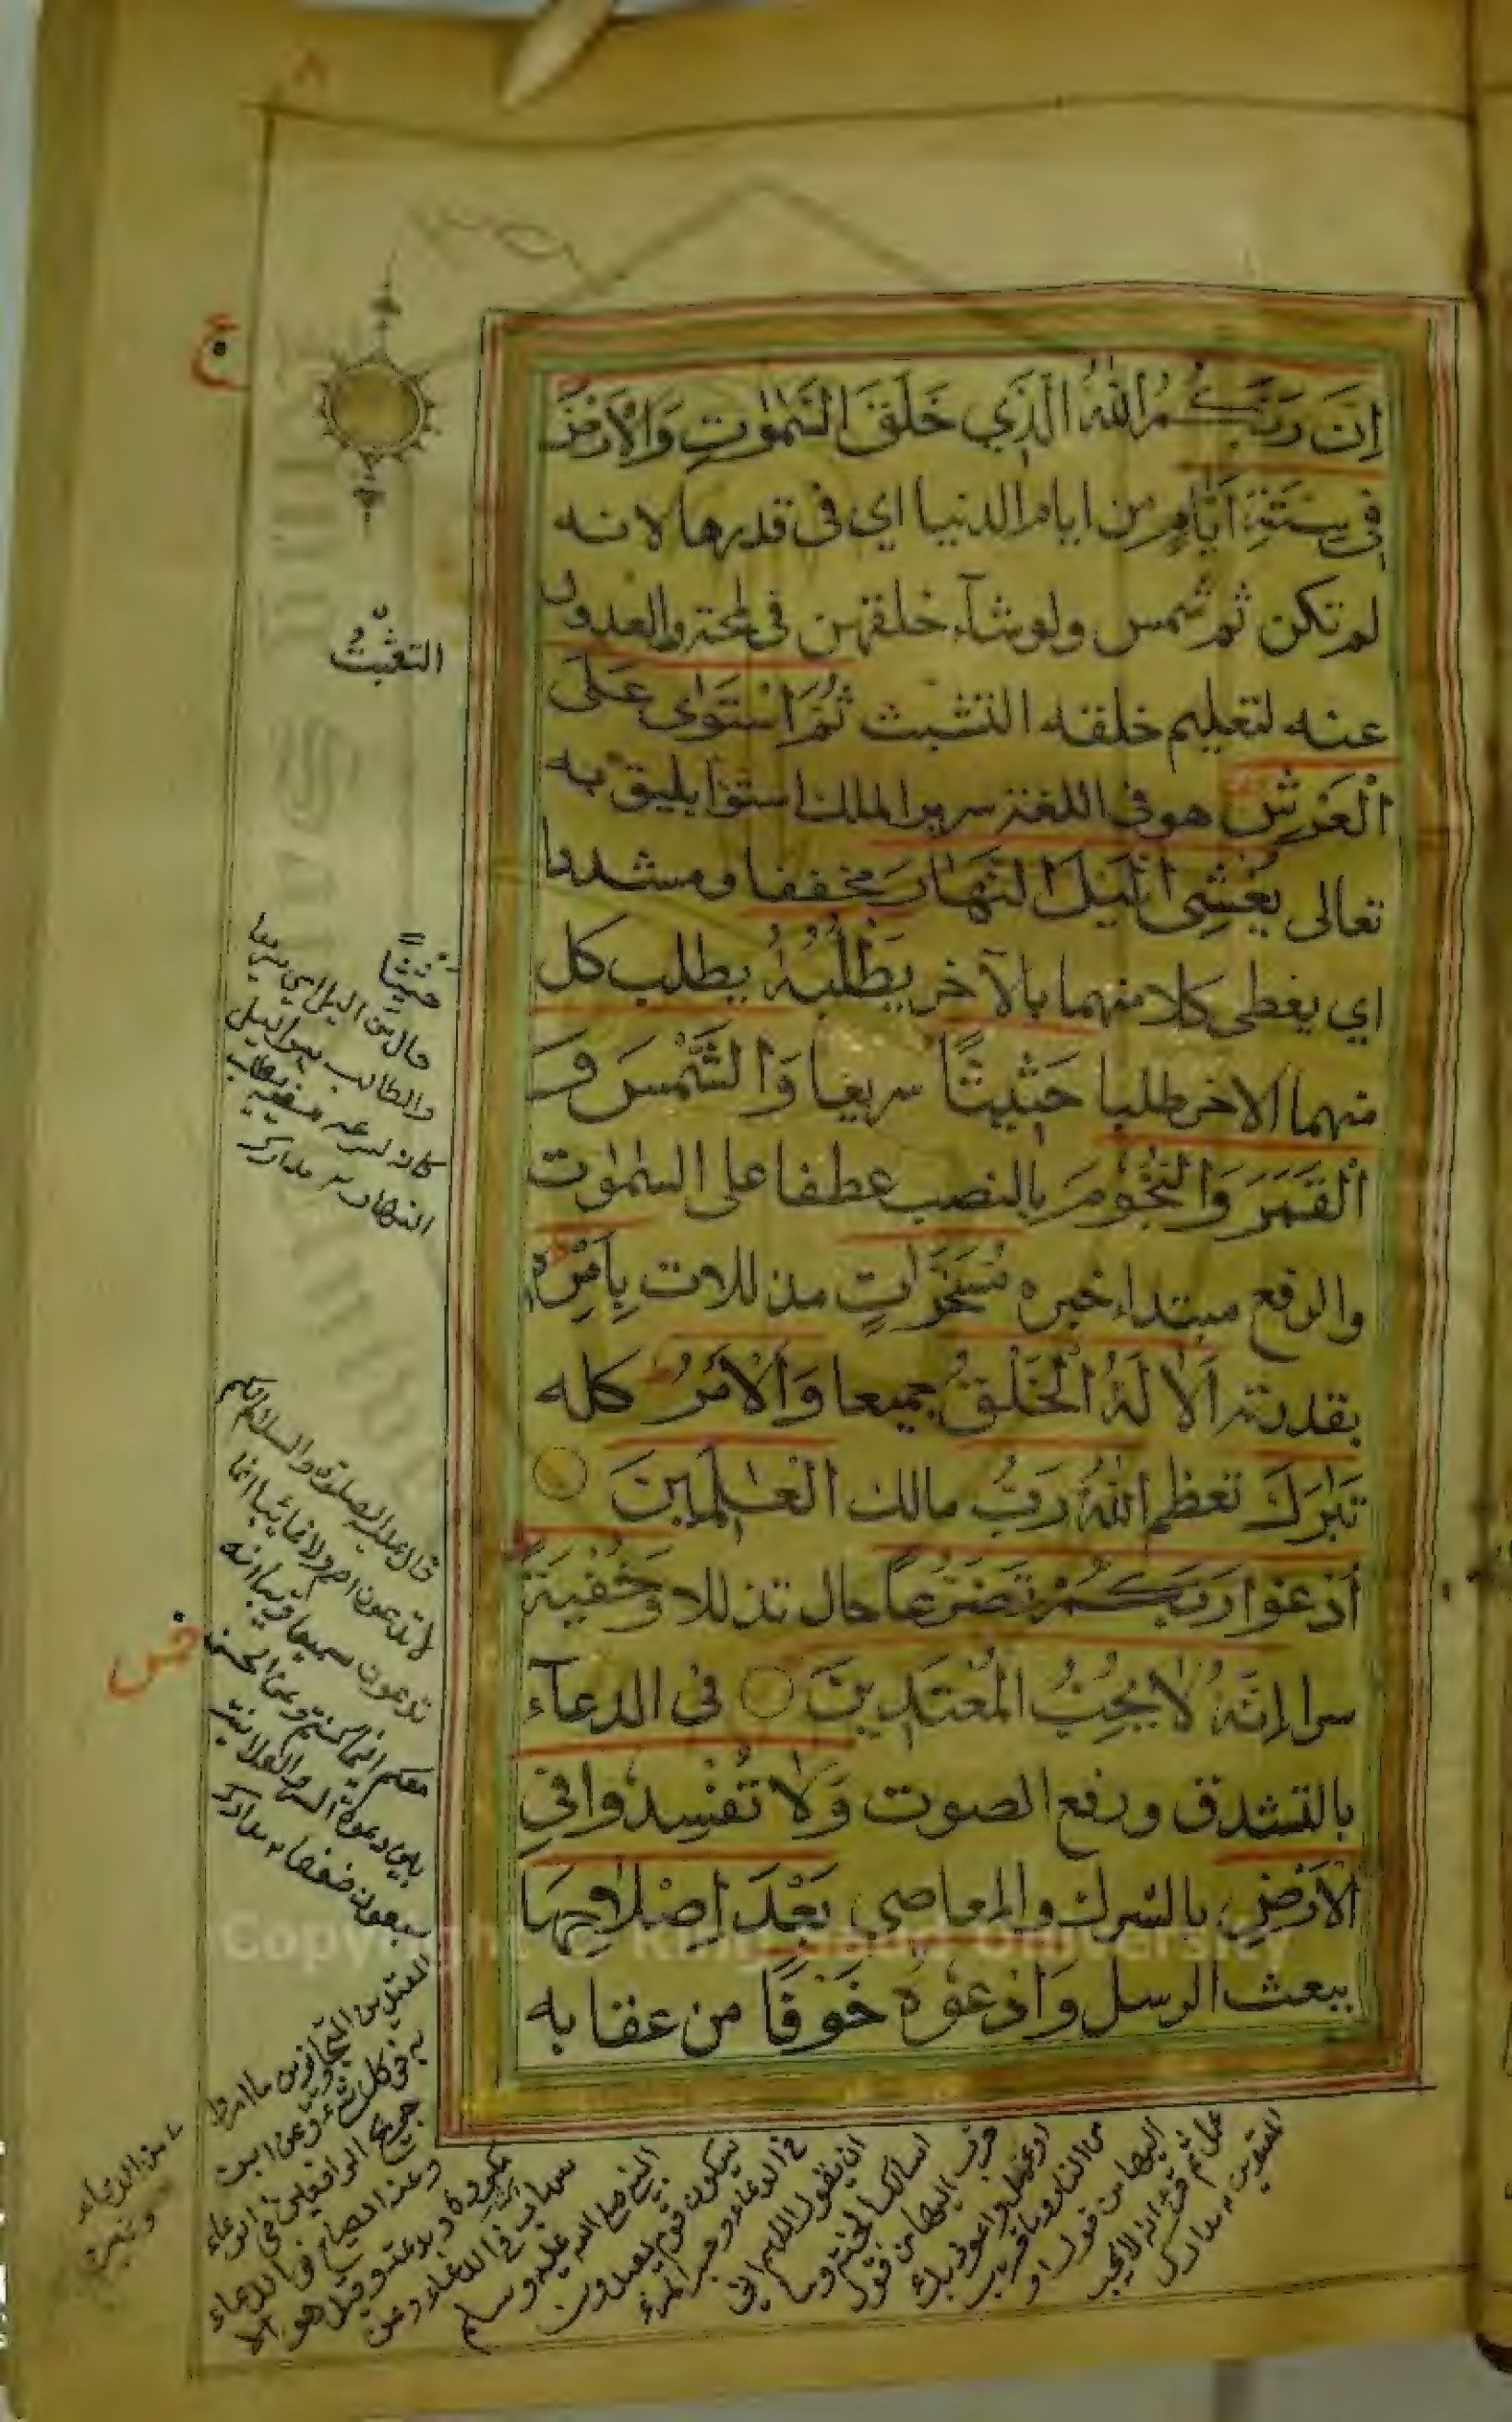 ٨
ع
إِنَّ رَبَّكُمُ اللّٰهُ الَّذِي خَلَقَ السَّمٰوٰتِ وَالْأَرْضَ
فِي سِتَّةِ أَيَّامٍ من ايام الدنيا اي في قدرها لانه
لم تكن ثم شمس ولو شآء خلقهن في لمحة والعدول
عنه لتعليم خلقه التثبت ثُمَّ اسْتَوٰى عَلَى
الْعَرْشِ هو في اللغة سرير الملك استوا يليق به
تعالى يُغْشِي الَّيْلَ النَّهَارَ مخففا ومشددا
اي يغطي كلا منهما بالآخر يَطْلُبُهُ يطلب كل
منهما الاخر طلبا حَثِيثًا سريعا وَالشَّمْسَ وَ
الْقَمَرَ وَالنُّجُومَ بالنصب عطفا على السمٰوٰت
والرفع مبتداء خبره مُسَخَّرَاتٍ مذللات بِأَمْرِهِ
بقدرته اَلَا لَهُ الْخَلْقُ جميعا وَالْأَمْرُ كله
تَبٰرَكَ تعظم اللّٰهُ رَبُّ مالك الْعٰلَمِينَ
اُدْعُوا رَبَّكُمْ تَضَرُّعًا حال تذللا وَخُفْيَةً
سرا إِنَّهُ لَا يُحِبُّ الْمُعْتَدِينَ في الدعآء
بالتشدق ورفع الصوت وَلَا تُفْسِدُوا فِي
الْأَرْضِ بالشرك والمعاصي بَعْدَ إِصْلَاحِهَا
ببعث الرسل وَادْعُوهُ خَوْفًا من عقابه
التثبت
حَثِيثًا
حال من اليل اي سريعا
والطالب هو اليل
كانه لسرعة مضيه يطلب
النهار مدارك
قال عليه الصلوة والسلام انكم
لا تدعون اصم ولا غائبا انما
تدعون سميعا قريبا انه
معكم اينما كنتم وعن الحسن
بين دعوة السر والعلانية
سبعون ضعفا مدارك
المعتدين المجاوزين ما امروا
به في كل شئ وعن ابن
جريج الرافعين في الدعاء
وعنه الصياح في الدعاء
مكروه وبدعة وقيل هو الا
سهاب في الدعاء وعن
النبي صلى الله عليه وسلم
سيكون قوم يعتدون
في الدعاء وحسب المرء
ان يقول اللهم اني
اسالك الجنة وما
قرب اليها من قول
او عمل واعوذ بك
من النار وما قرب
اليها من قول او
عمل ثم قرا انه لا يحب
المعتدين مدارك
Copyright © King Saud University